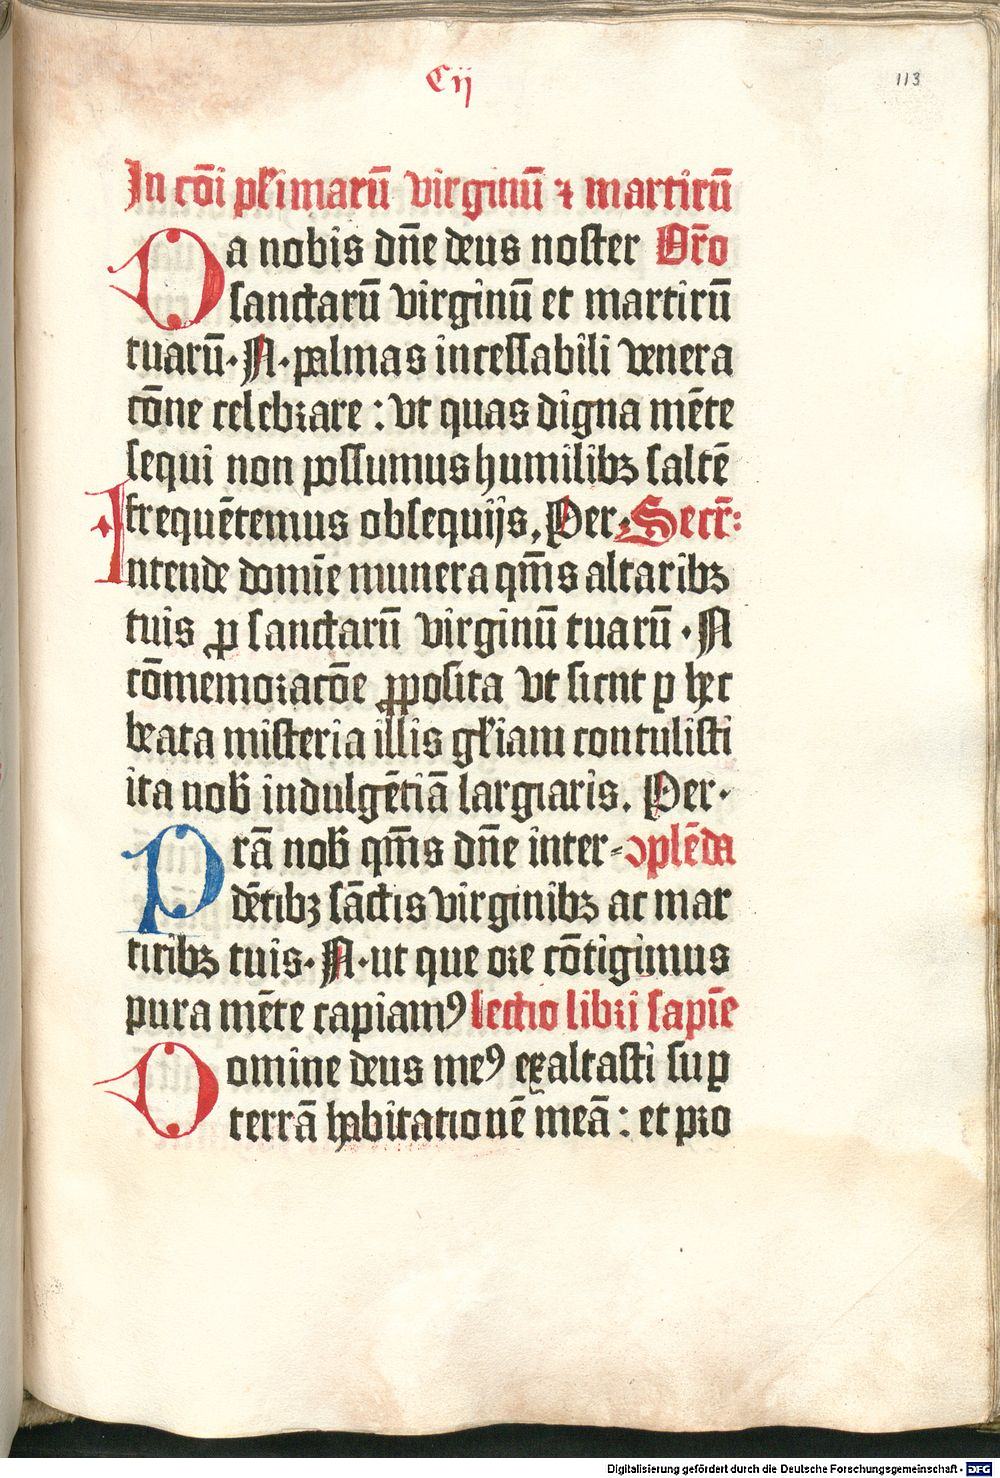 Cij
113
In cōi pl̄imarū virginū ⁊ martirū
Da nobis dn̄e deus noster Or̄o
sanctarū virginū et martirū
tuarū · N · palmas incessabili venera
cōne celebrare : vt quas digna mēte
sequi non possumus humilibꝫ saltē
frequētemus obsequijs, Per · Secr̄:
Intende domīe munera qm̄s altaribꝫ
tuis ꝓ sanctarū virginū tuarū · N
cōmemoracōe ꝓposita vt sicut ꝑ hec
beata misteria illis gl̄iam contulisti
ita nob̄ indulgētiā largiaris. Per ·
Prā nob̄ qm̄s dn̄e inter- ↄplēda
dētibꝫ sāctis virginibꝫ ac mar
tiribꝫ tuis · N · ut que ore cōtigimus
pura mēte capiamꝰ lectio libri sapiē
Domine deus meꝰ exaltasti suꝑ
terrā habitationē meā : et pro
Digitalisierung gefördert durch die Deutsche Forschungsgemeinschaft - DFG